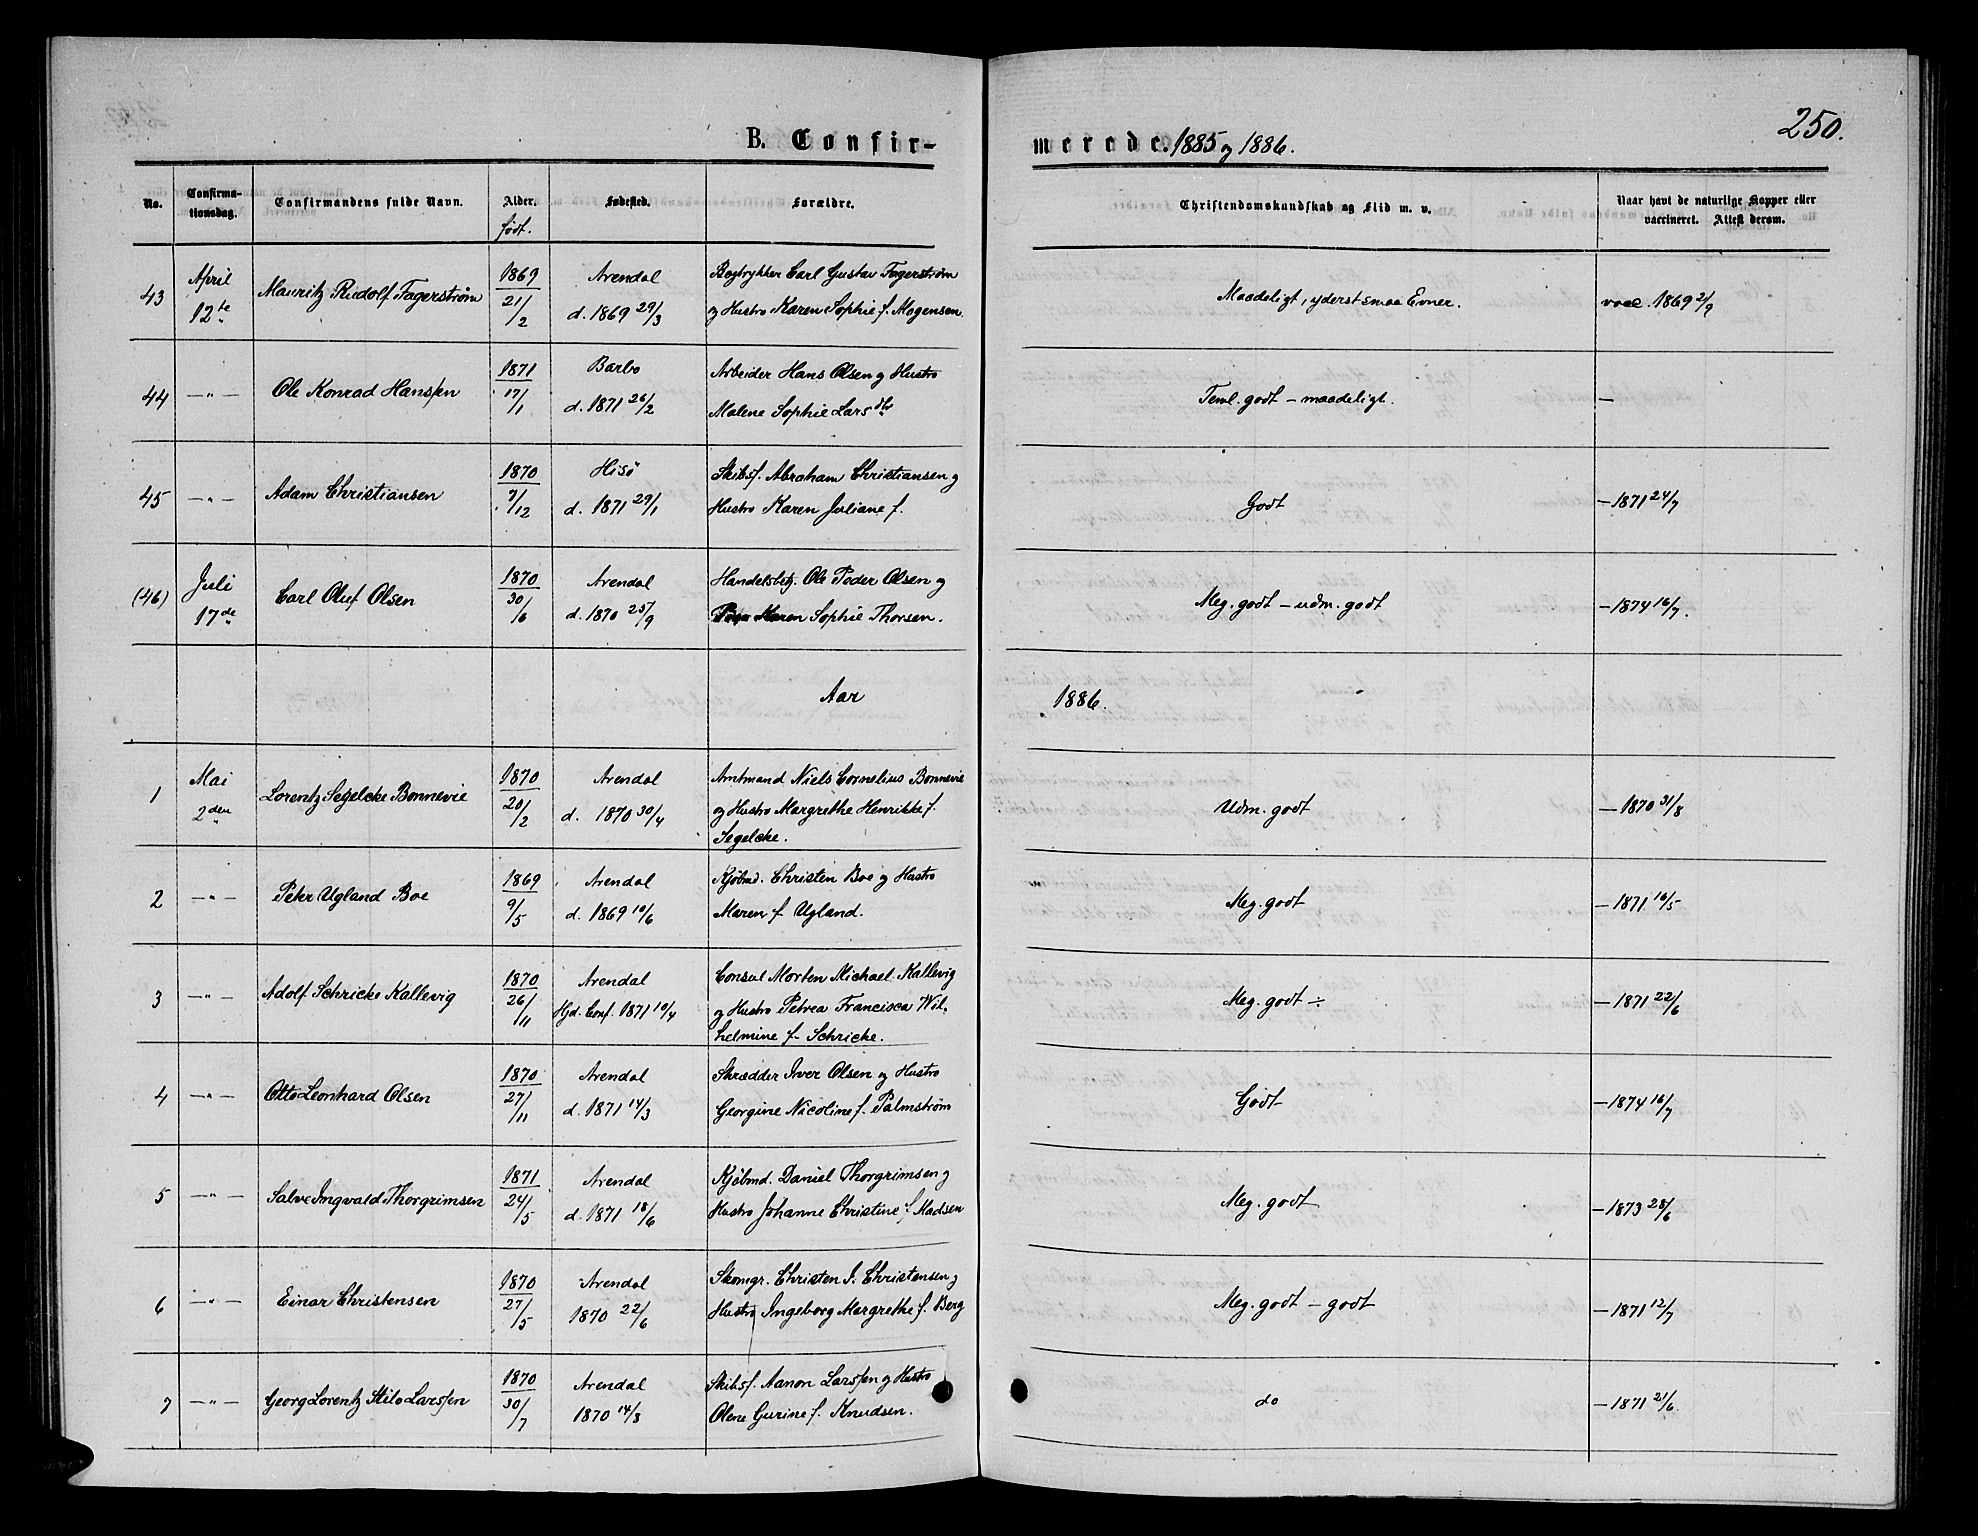 250.
B. Confir-
merede. 1885 og 1886.
No.
Confirma-
tionsdag.
Confirmandens fulde Navn.
Alder.
født.
Fødested.
Forældre.
Christendomskundskab og Flid m. v.
Naar havt de naturlige Kopper eller
vaccineret. Attest derom.
43 April 12te Mauritz Rudolf Fagerstrøm 1869 21/2 Arendal d. 1869 29/3
Bogtrykker Carl Gustav Fagerstrøm
og Hustro Karen Sophie f. Mogensen.
Maadeligt, yderst smaa Evner. vacc. 1869 2/9
44 —„— Ole Konrad Hanssen 1871 17/1 Barbo d. 1871 26/2
Arbeider Hans Olsen og Hustro
Malene Sophie Larsdtr
Teml. godt – maadeligt. —
45 —„— Adam Christiansen 1870 7/12 Hisø d. 1871 29/1
Skibsf. Abraham Christiansen og
Hustro Karen Juliane f.
Godt — 1871 24/7
(46) Juli 17de Carl Oluf Olsen 1870 30/6 Arendal d. 1870 25/9
Handelsbetj. Ole Peder Olsen og
Maren Sophie Thorsen.
Meg. godt – udm. godt — 1874 16/7.
Aar 1886.
1 Mai 2den Lorentz Segelcke Bonnevie 1870 20/2 Arendal d. 1870 30/4
Amtmand Niels Cornelius Bonnevie
og Hustro Margrethe Henrikke f.
Segelcke.
Udm. godt — 1870 31/8
2 —„— Peter Ugland Boe 1869 9/5 Arendal d. 1869 10/6
Kjøbmd. Christen Boe og Hustro
Maren f. Ugland.
Meg. godt — 1871 10/5
3 —„— Adolf Schricke Kallevig 1870 26/11 Arendal Hjd. Conf. 1871 10/4
Consul Morten Michael Kallevig
og Hustro Petrea Francisca Wil-
helmine f. Schricke.
Meg. godt ÷ — 1871 22/6
4 —„— Otto Leonhard Olsen 1870 27/11 Arendal d. 1871 14/3
Skrædder Iver Olsen og Hustro
Georgine Nicoline f. Palmstrøm
Godt — 1874 16/7
5 —„— Salve Ingvald Thorgrimsen 1871 24/5 Arendal d. 1871 18/6
Kjøbmd. Daniel Thorgrimsen og
Hustro Johanne Christine f. Madsen
Meg. godt — 1873 28/6
6 —„— Einar Christensen 1870 27/5 Arendal 1870 22/6
Skomgr. Christen S. Christensen og
Hustro Ingeborg Margrethe f. Berg
Meg. godt – godt — 1871 12/7
7 —„— Georg Lorentz Stilo Larssen 1870 30/7 Arendal 1870 14/8
Skibsf. Aanon Larssen og Hustro
Olene Gurine f. Knudsen.
do — 1871 21/6.